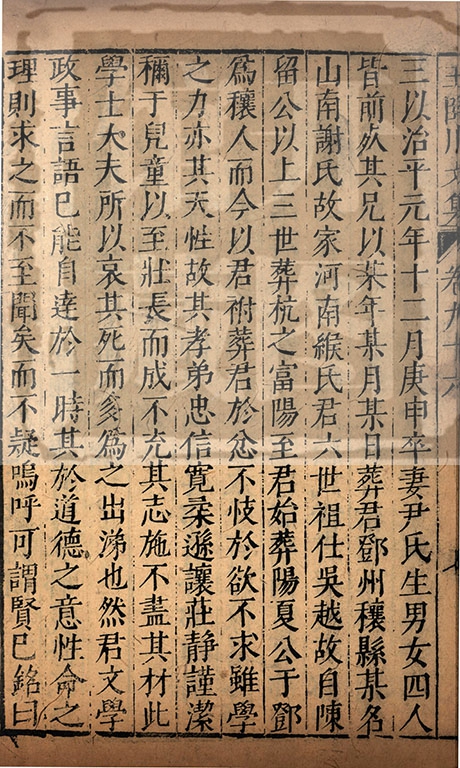 王臨川文集 卷九十六
三以治平元年十二月庚申卒妻尹氏生男女四人
皆前歿其兄以某年某月某日葬君鄧州穰縣某名
山南謝氏故家河南緱氏君六世祖仕吳越故自陳
留公以上三世葬杭之富陽至君始葬陽夏公于鄧
爲穰人而今以君祔葬君於忿不忮於欲不求雖學
之力亦其天性故其孝弟忠信寛柔遜讓莊静謹潔
穪于兒童以至壯長而成不充其志施不盡其材此
學士大夫所以哀其死而多爲之出涕也然君文學
政事言語巳能自達於一時其於道德之意性命之
理則求之而不至聞矣而不疑嗚呼可謂賢巳銘曰